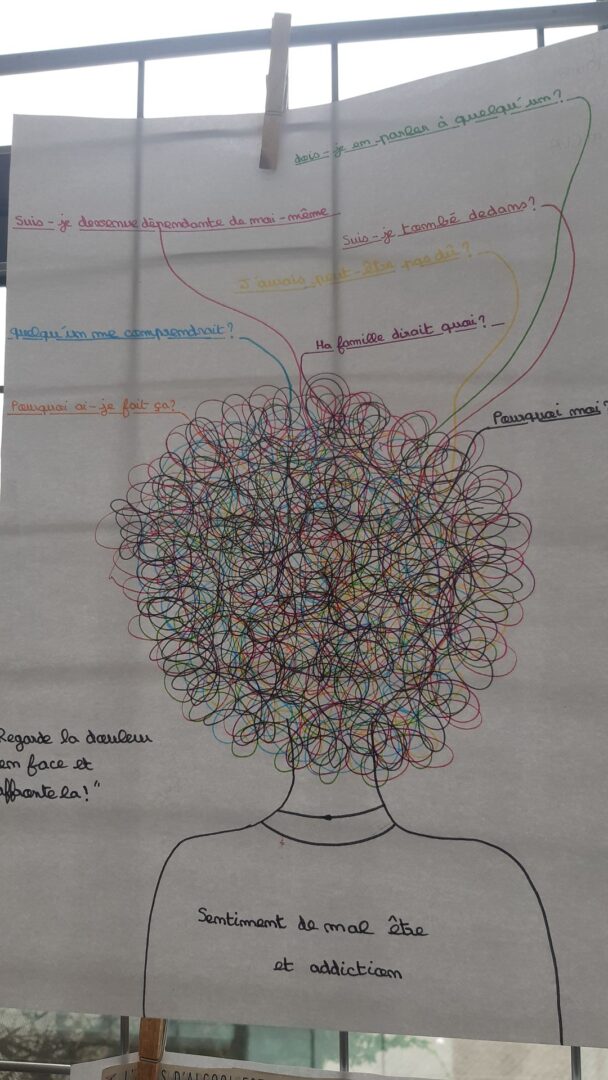 dois-je en parler à quelqu'un?
Suis-je devenue dépendante de moi-même
Suis-je tombé dedans?
J'aurais peut-être pas dû?
quelqu'un me comprendrait?
Ma famille dirait quoi?
Pourquoi ai-je fait ça?
Pourquoi moi?
Regarde la douleur
en face et
affronte la!"
Sentiment de mal être
et addiction
D'ALCOOL